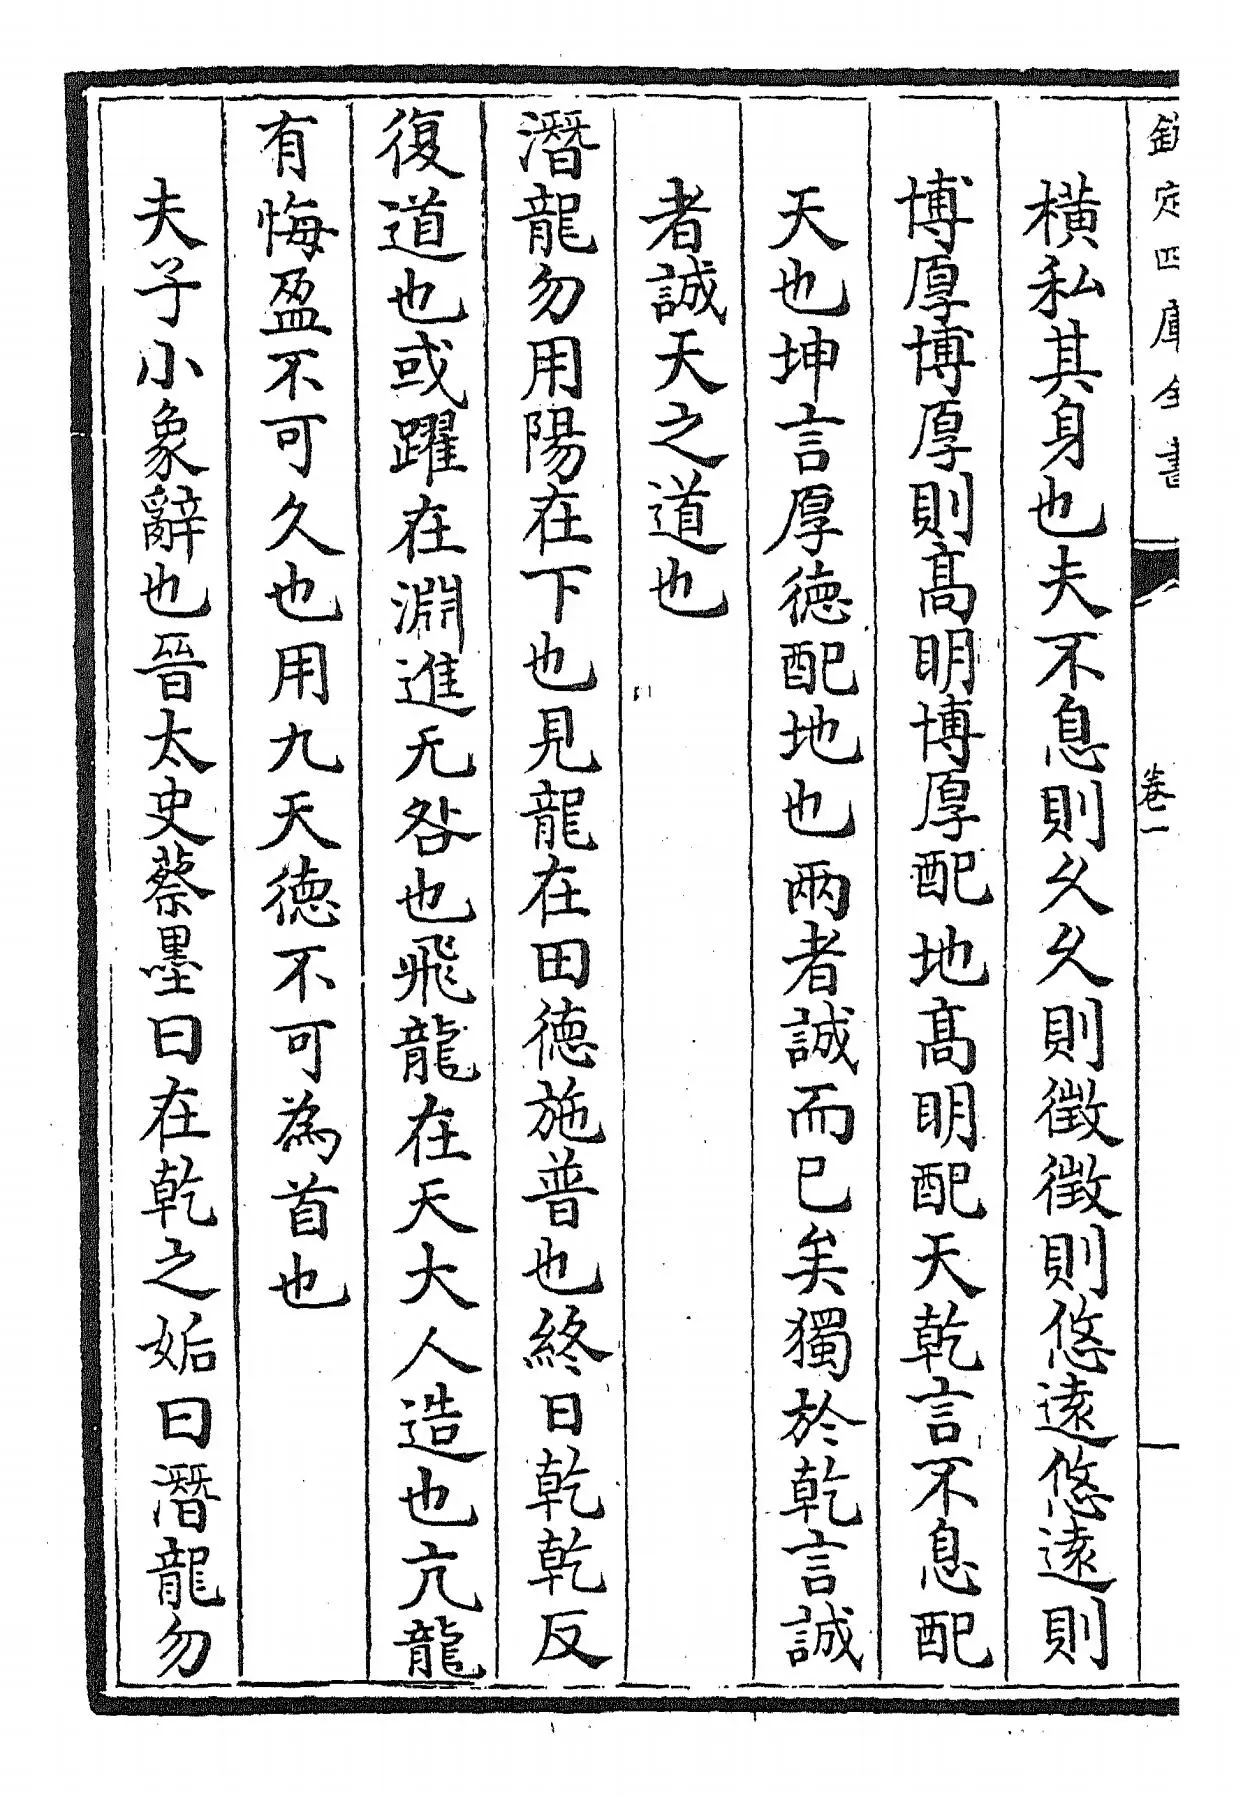 欽定四庫全書
卷一
橫私其身也夫不息則久久則徵徵則悠遠悠遠則
博厚博厚則髙明博厚配地髙明配天乾言不息配
天也坤言厚德配地也兩者誠而已矣獨於乾言誠
者誠天之道也
潛龍勿用陽在下也見龍在田德施普也終日乾乾反
復道也或躍在淵進无咎也飛龍在天大人造也亢龍
有悔盈不可久也用九天德不可為首也
夫子小象辭也晉太史蔡墨曰在乾之姤曰潛龍勿